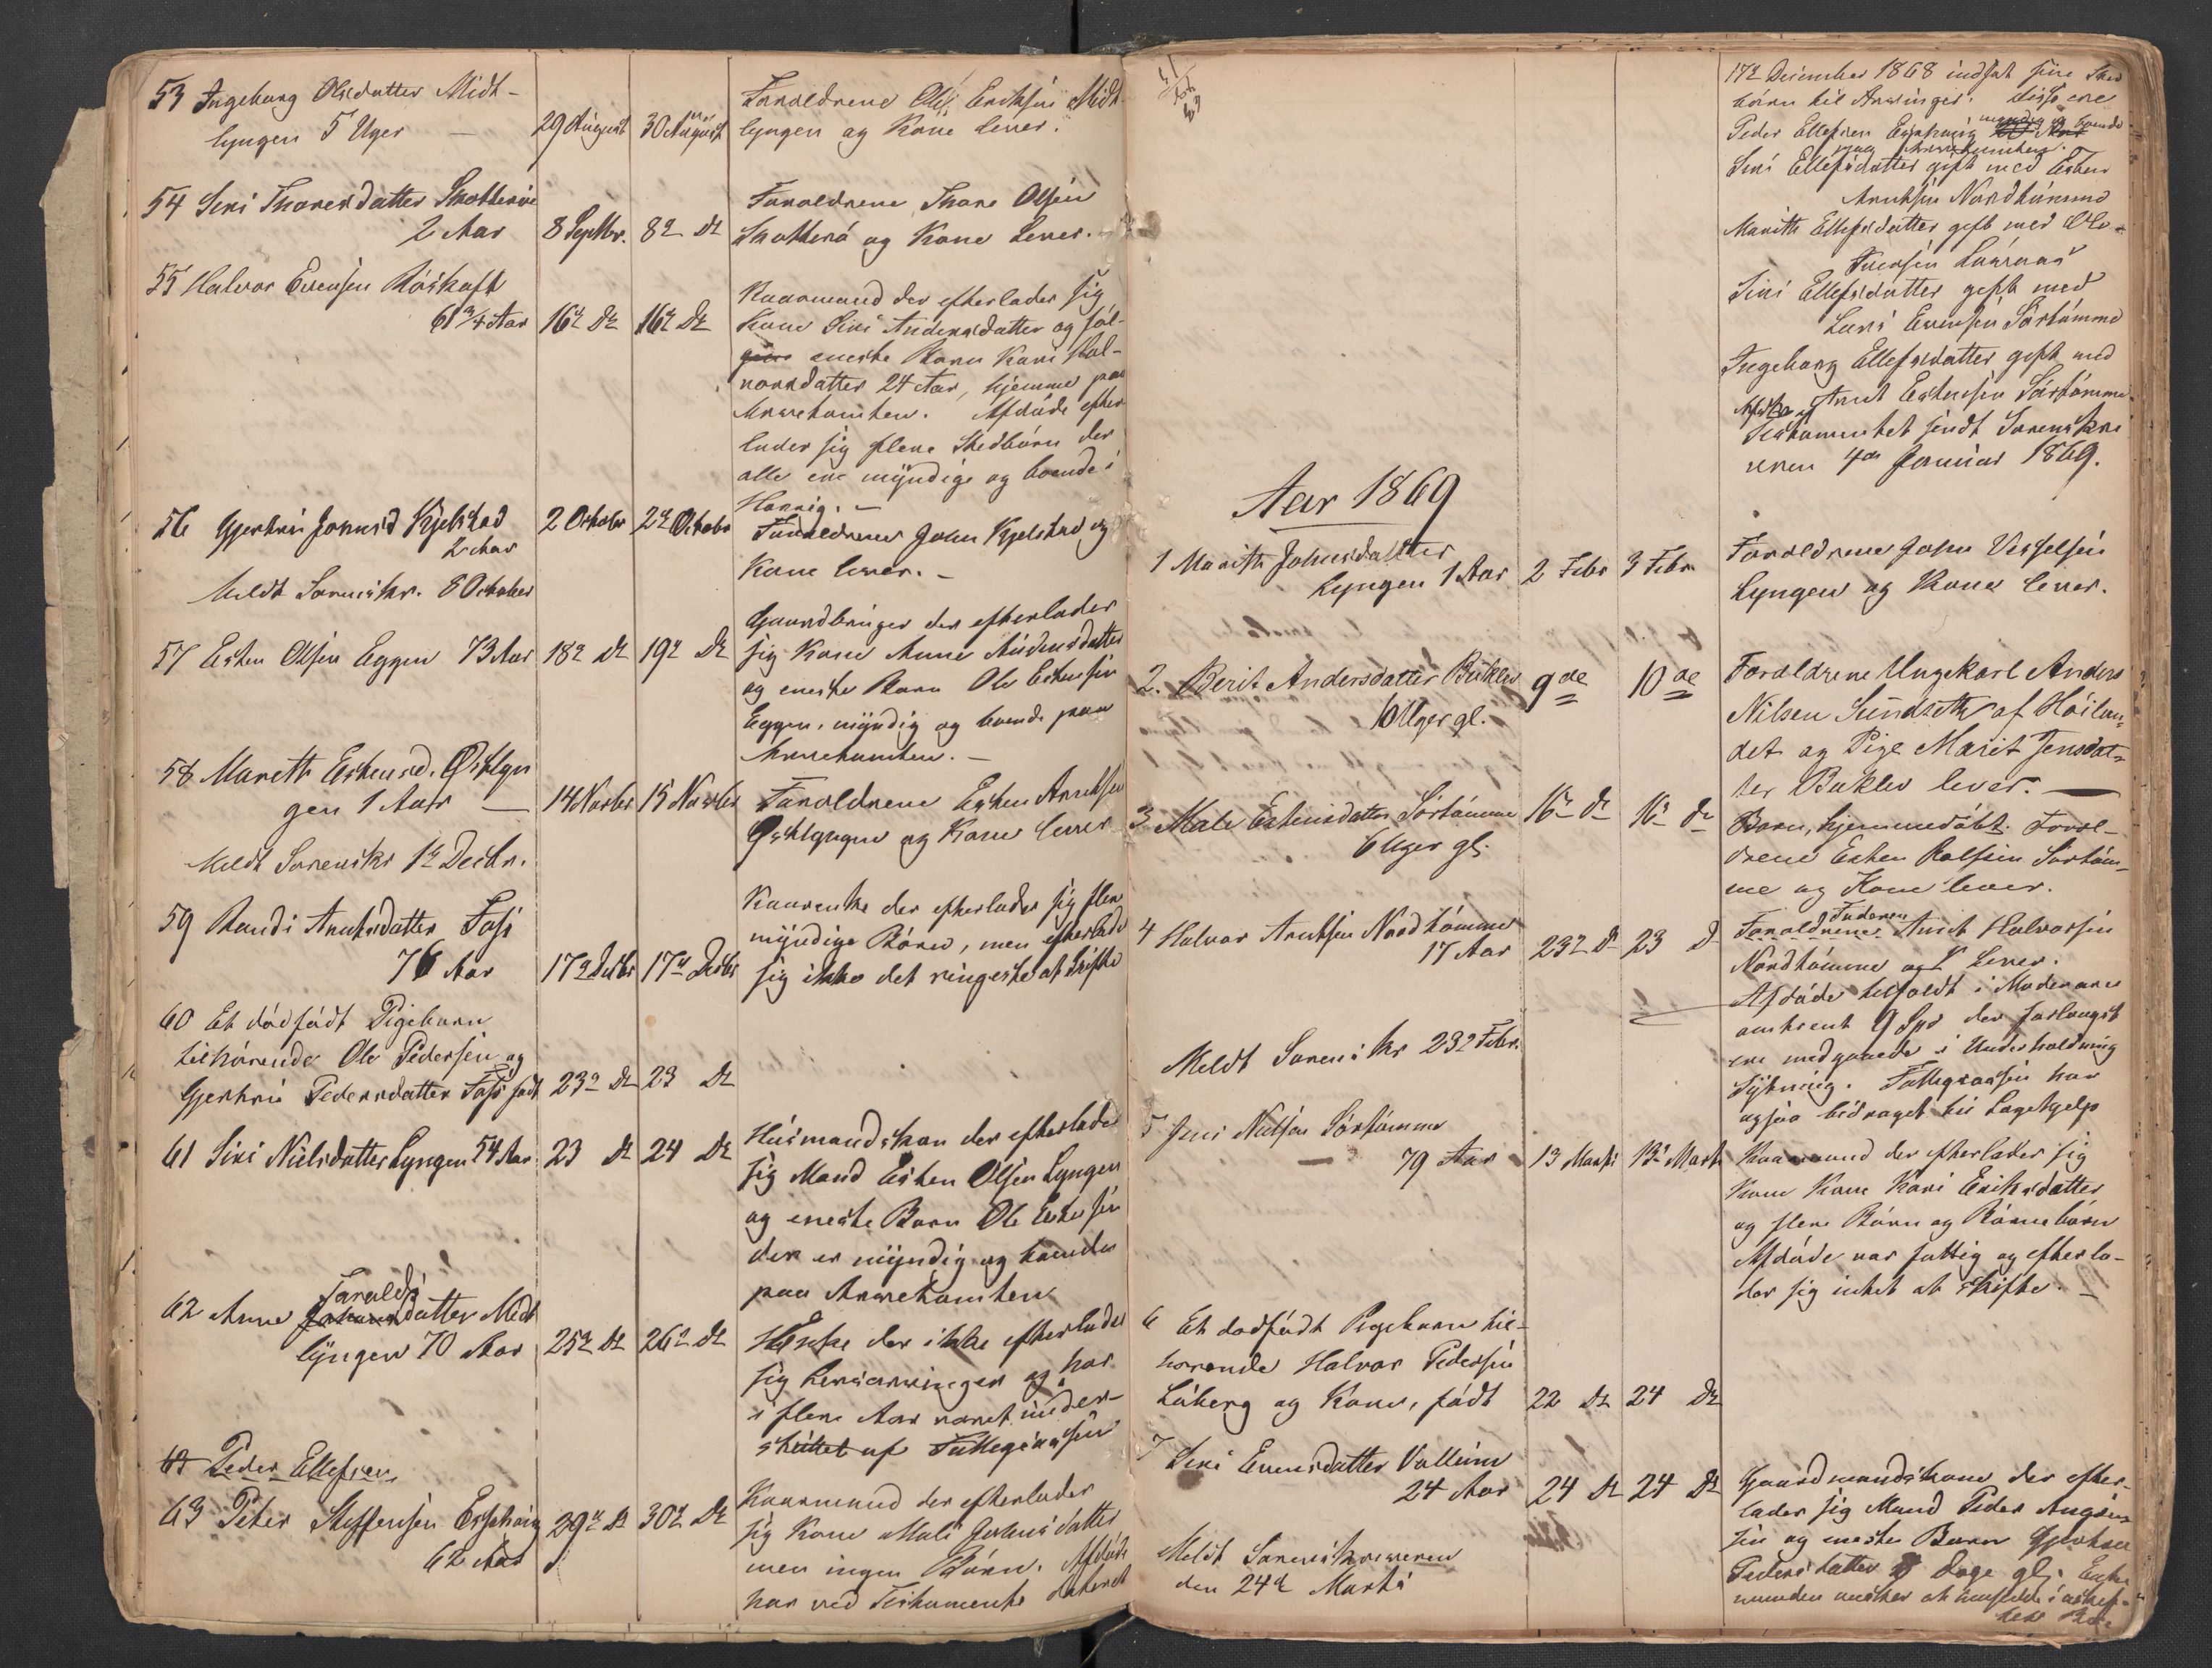 53 Ingeborg Olsdatter Midt-
lyngen 5 Uger — 29 August 30 August
Forældrene Ole Eriksen Midt-
lyngen og Kone lever.
54 Siri Thoresdatter
2 Aar 8 Septbr. 8de Do
Forældrene Thore Olsen
og Kone lever.
55 Halvor Evensen Röskaft
61 3/4 Aar 16de Do 16de Do
Kaarmand der efterlader sig
Kone Siri Andersdatter og föl-
eneste Barn Kari Hal-
vorsdatter 24 Aar, hjemme paa
Arvetomten. Afdöde efter
lader sig flere Stedbörn der
alle ere myndige og boende i
Horrig. —
56 Gjertrü Jonsd Kjelstad
2 Aar
2 Octobr 2de Octobr
Forældrene John Kjelstad og
Kone lever. —
Meldt Sorenskr. 8 October
57 Esten Olsen Eggen 73 Aar 18de Do 19de Do
Gaardbruger der efterlader
sig Kone Anne Andersdatter
og eneste Barn Ole Estensen
Eggen, myndig og boende paa
Arvetomten. —
58 Marith Estensd. Östlyn
gen 1 Aar — 14 Novbr 15 Novbr
Forældrene Esten Arntsen
Östlyngen og Kone lever
Meldt Sorenskr 1de Decbr.
59 Randi Arntsdatter Foss
76 Aar 17de Decbr 17de Decbr
Kaarenke der efterlader sig flere
myndige Börn, men efterlader
sig ikke det ringeste at Skifte
60 Et dödfödt Pigebarn
tilhörende Ole Pedersen og
Gjertrü Pedersdatter Foss födt 23de Do 23 Do
61 Siri Nielsdatter Lyngen 54 Aar 23 Do 24 Do
Huusmandskone der efterlader
sig Mand Esten Olsen Lyngen
og eneste Barn Ole Estensen
der er myndig og boende
paa Arvetomten
Taralds
62 Anne datter Midt
lyngen 70 Aar 25de Do 26de Do
Enke der ikke efterlader
sig Livsarvinger og har
i flere Aar været under-
stöttet af Fattigcassen
63 Peder Ellefsen
63 Peter Steffensen Esphaug 29de Do 30de Do
62 Aar
Kaarmand der efterlader
sig Kone Mali Johnsdatter
men ingen Börn. Afdöde
har ved Testamente dateret
17de December 1868 indsat sine Sted
börn til Arvinger. Disse ere
Peder Ellefsen Esphaug myndig og boende
paa Arvetomten.
Siri Ellefsdatter gift med Esten
Arntsen Nordtömme
Marith Ellefsdatter gift med Ole
Siri Ellefsdatter gift med
Lars Evensen Sörtömme
Ingeborg Ellefsdatter gift med
Arnt Estensen Sörtömme
Testamentet sendt Sorenskri
veren 4de Januar 1869.
Aar 1869
1 Marith Johnsdatter
Lyngen 1 Aar 2 Febr 3 Febr.
Forældrene John
Lyngen og Kone lever.
2. Berit Andersdatter Buklev
Uger gl. 9de 10de
Forældrene Ungekarl Anders
Nilsen Sundseth af Höilan-
det og Pige Marit Jensdat-
ter Buklev lever. —
3 Mali Estensdatter Sörtömme
6 Uger gl. 16de Do 16de Do
Barn, hjemmedöbt. Foræl-
drene Esten Rolfsen Sörtöm-
me og Kone lever.
4 Halvor Arntsen Nordtömme
17 Aar 23de Do 23 Do
Faderen
Forældrene Arnt Halvorsen
Nordtömme og lever.
Afdöde tilfaldt i Mödrearv
omtrent 9 Spd der forlængst
ere medgaaede i Underholdning
Sygning. Fattigcassen har
ogsaa bidraget til Lægehjelp
Meldt Sorenskr 23de Febr.
5 Jens Nielsen Sörtömme
79 Aar 13 Marts 13de Marts
Kaarmand der efterlader sig
Kone Kone Kari Eriksdatter
og flere Börn og Börnebörn
Afdöde var fattig og efterla-
der sig intet at skifte. —
6 Et dodfödt Pigebarn til-
hörende Halvor Pedersen
Löberg og Kone, födt 22 Do 24 Do
7 Siri Evensdatter Volleim
24 Aar 24 Do 24 Do
Gaardmandskone der efter-
lader sig Mand Peder
sen og eneste Barn Gjertrud
Pedersdatter 8 Dage gl. Enke
manden önsker at hensidde i uskif-
tet Bo.
Meldt Sorenskriveren
den 24de Marts